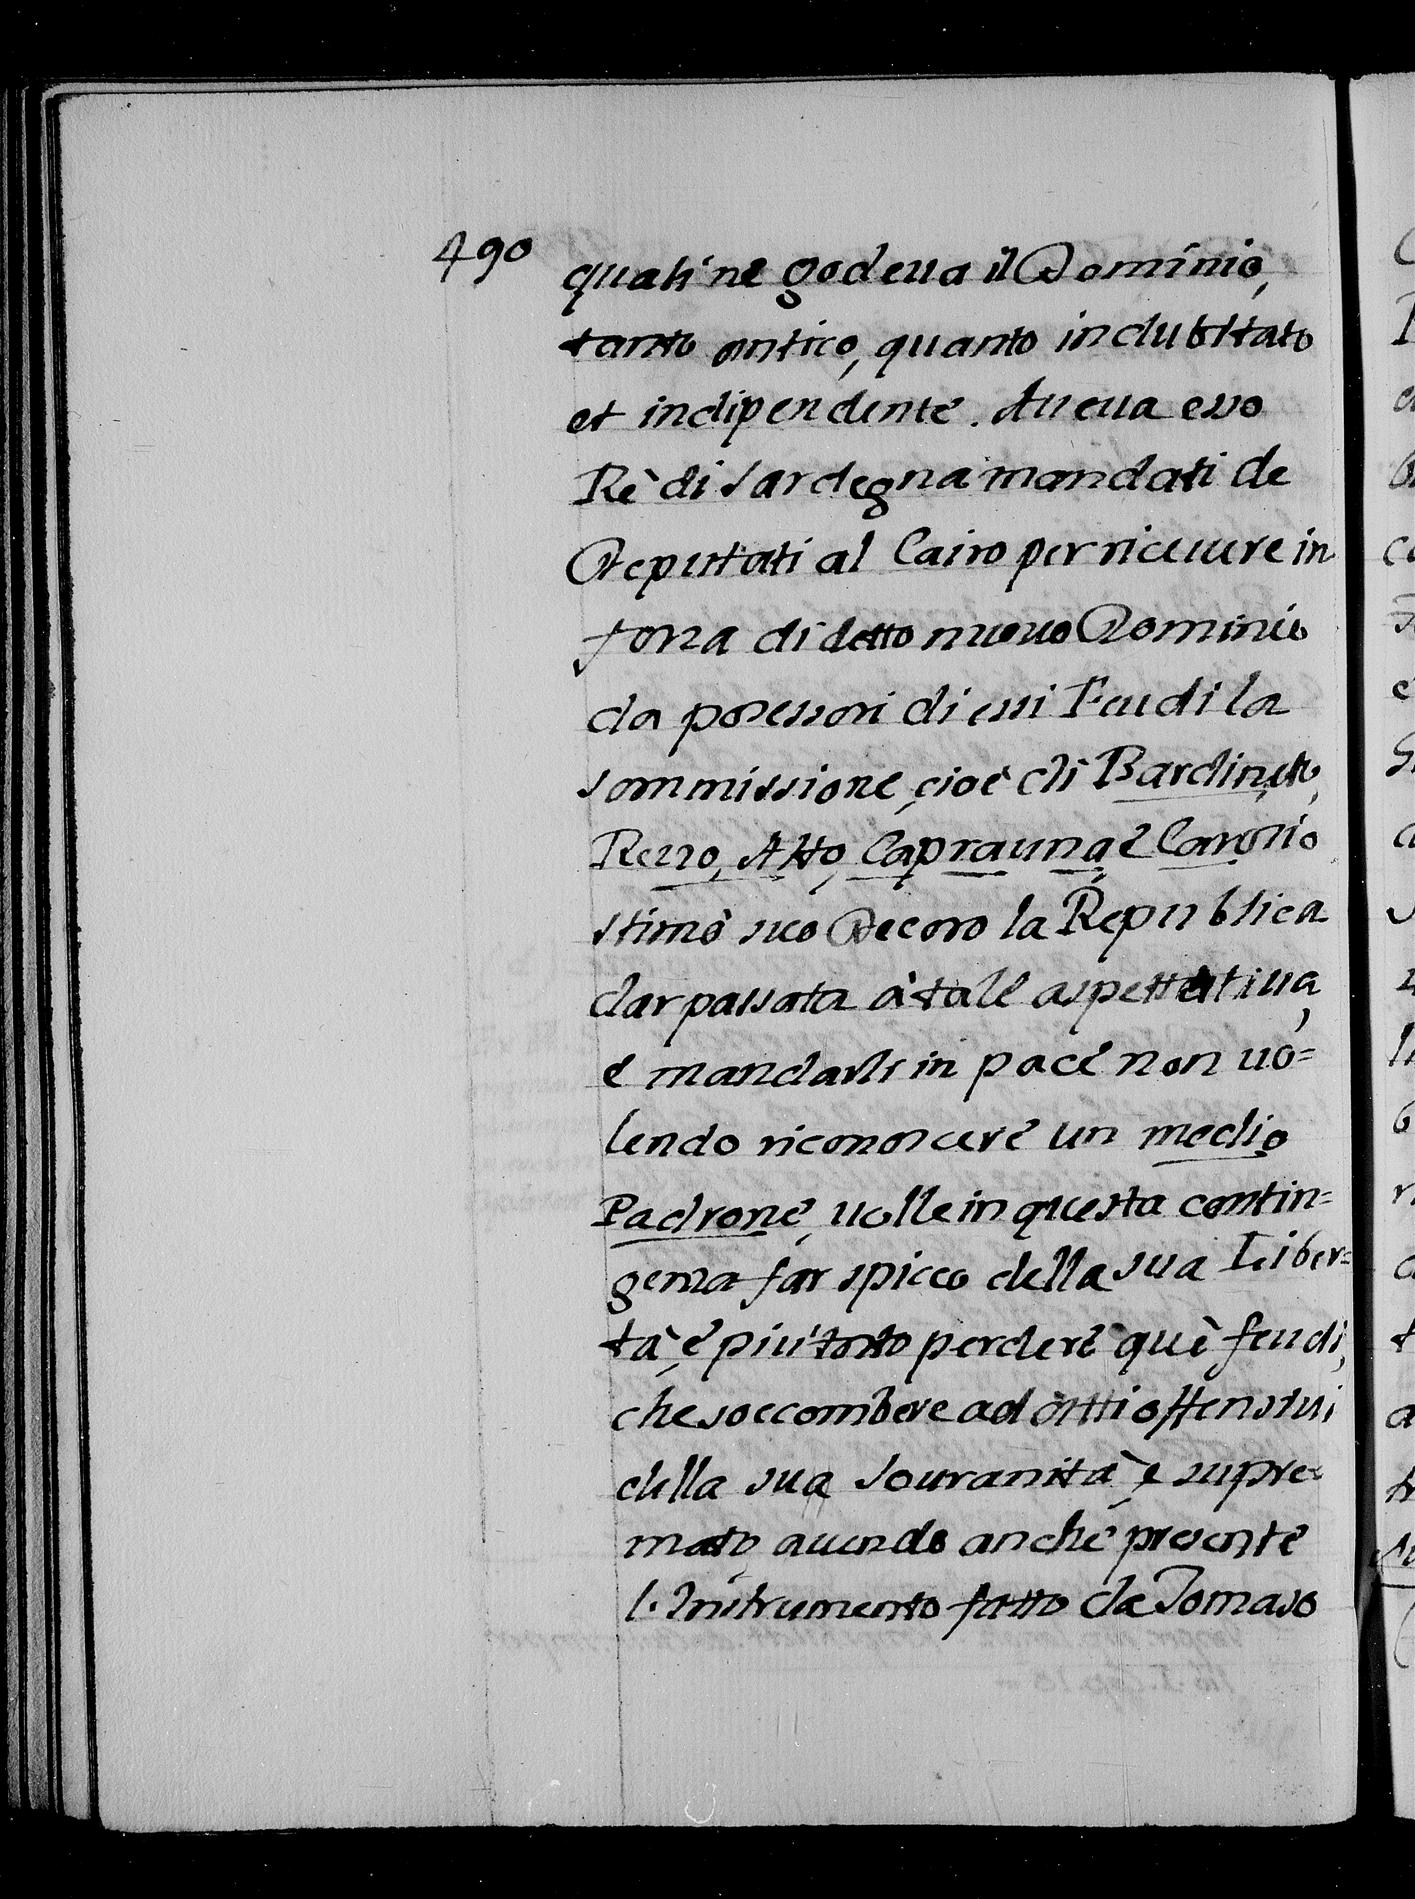 490
quali ne godeua il Dominio,
tanto antico, quanto indubitato
et indipendente. Aueua esso
Rè di Sardegna mandati de
Deputati al Cairo per riceuere in
forza di detto nuouo Dominio
da possessori di essi Feudi la
sommissione, cioè di Bardineto,
Rezzo, Alto, Caprauna, e Carosio
stimò suo Decoro la Republica
dar passata à tale aspettatiua,
e mandarli in pace non uo=
lendo riconoscere un medio
Padrone, uolle in questa contin=
genza far spicco della sua Liber=
tà, e più tosto perdere què feudi,
che soccombere ad atti offensiui
della sua Souranità, e supre=
mato, auendo anche presente
l'Instrumento fatto da Tomaso